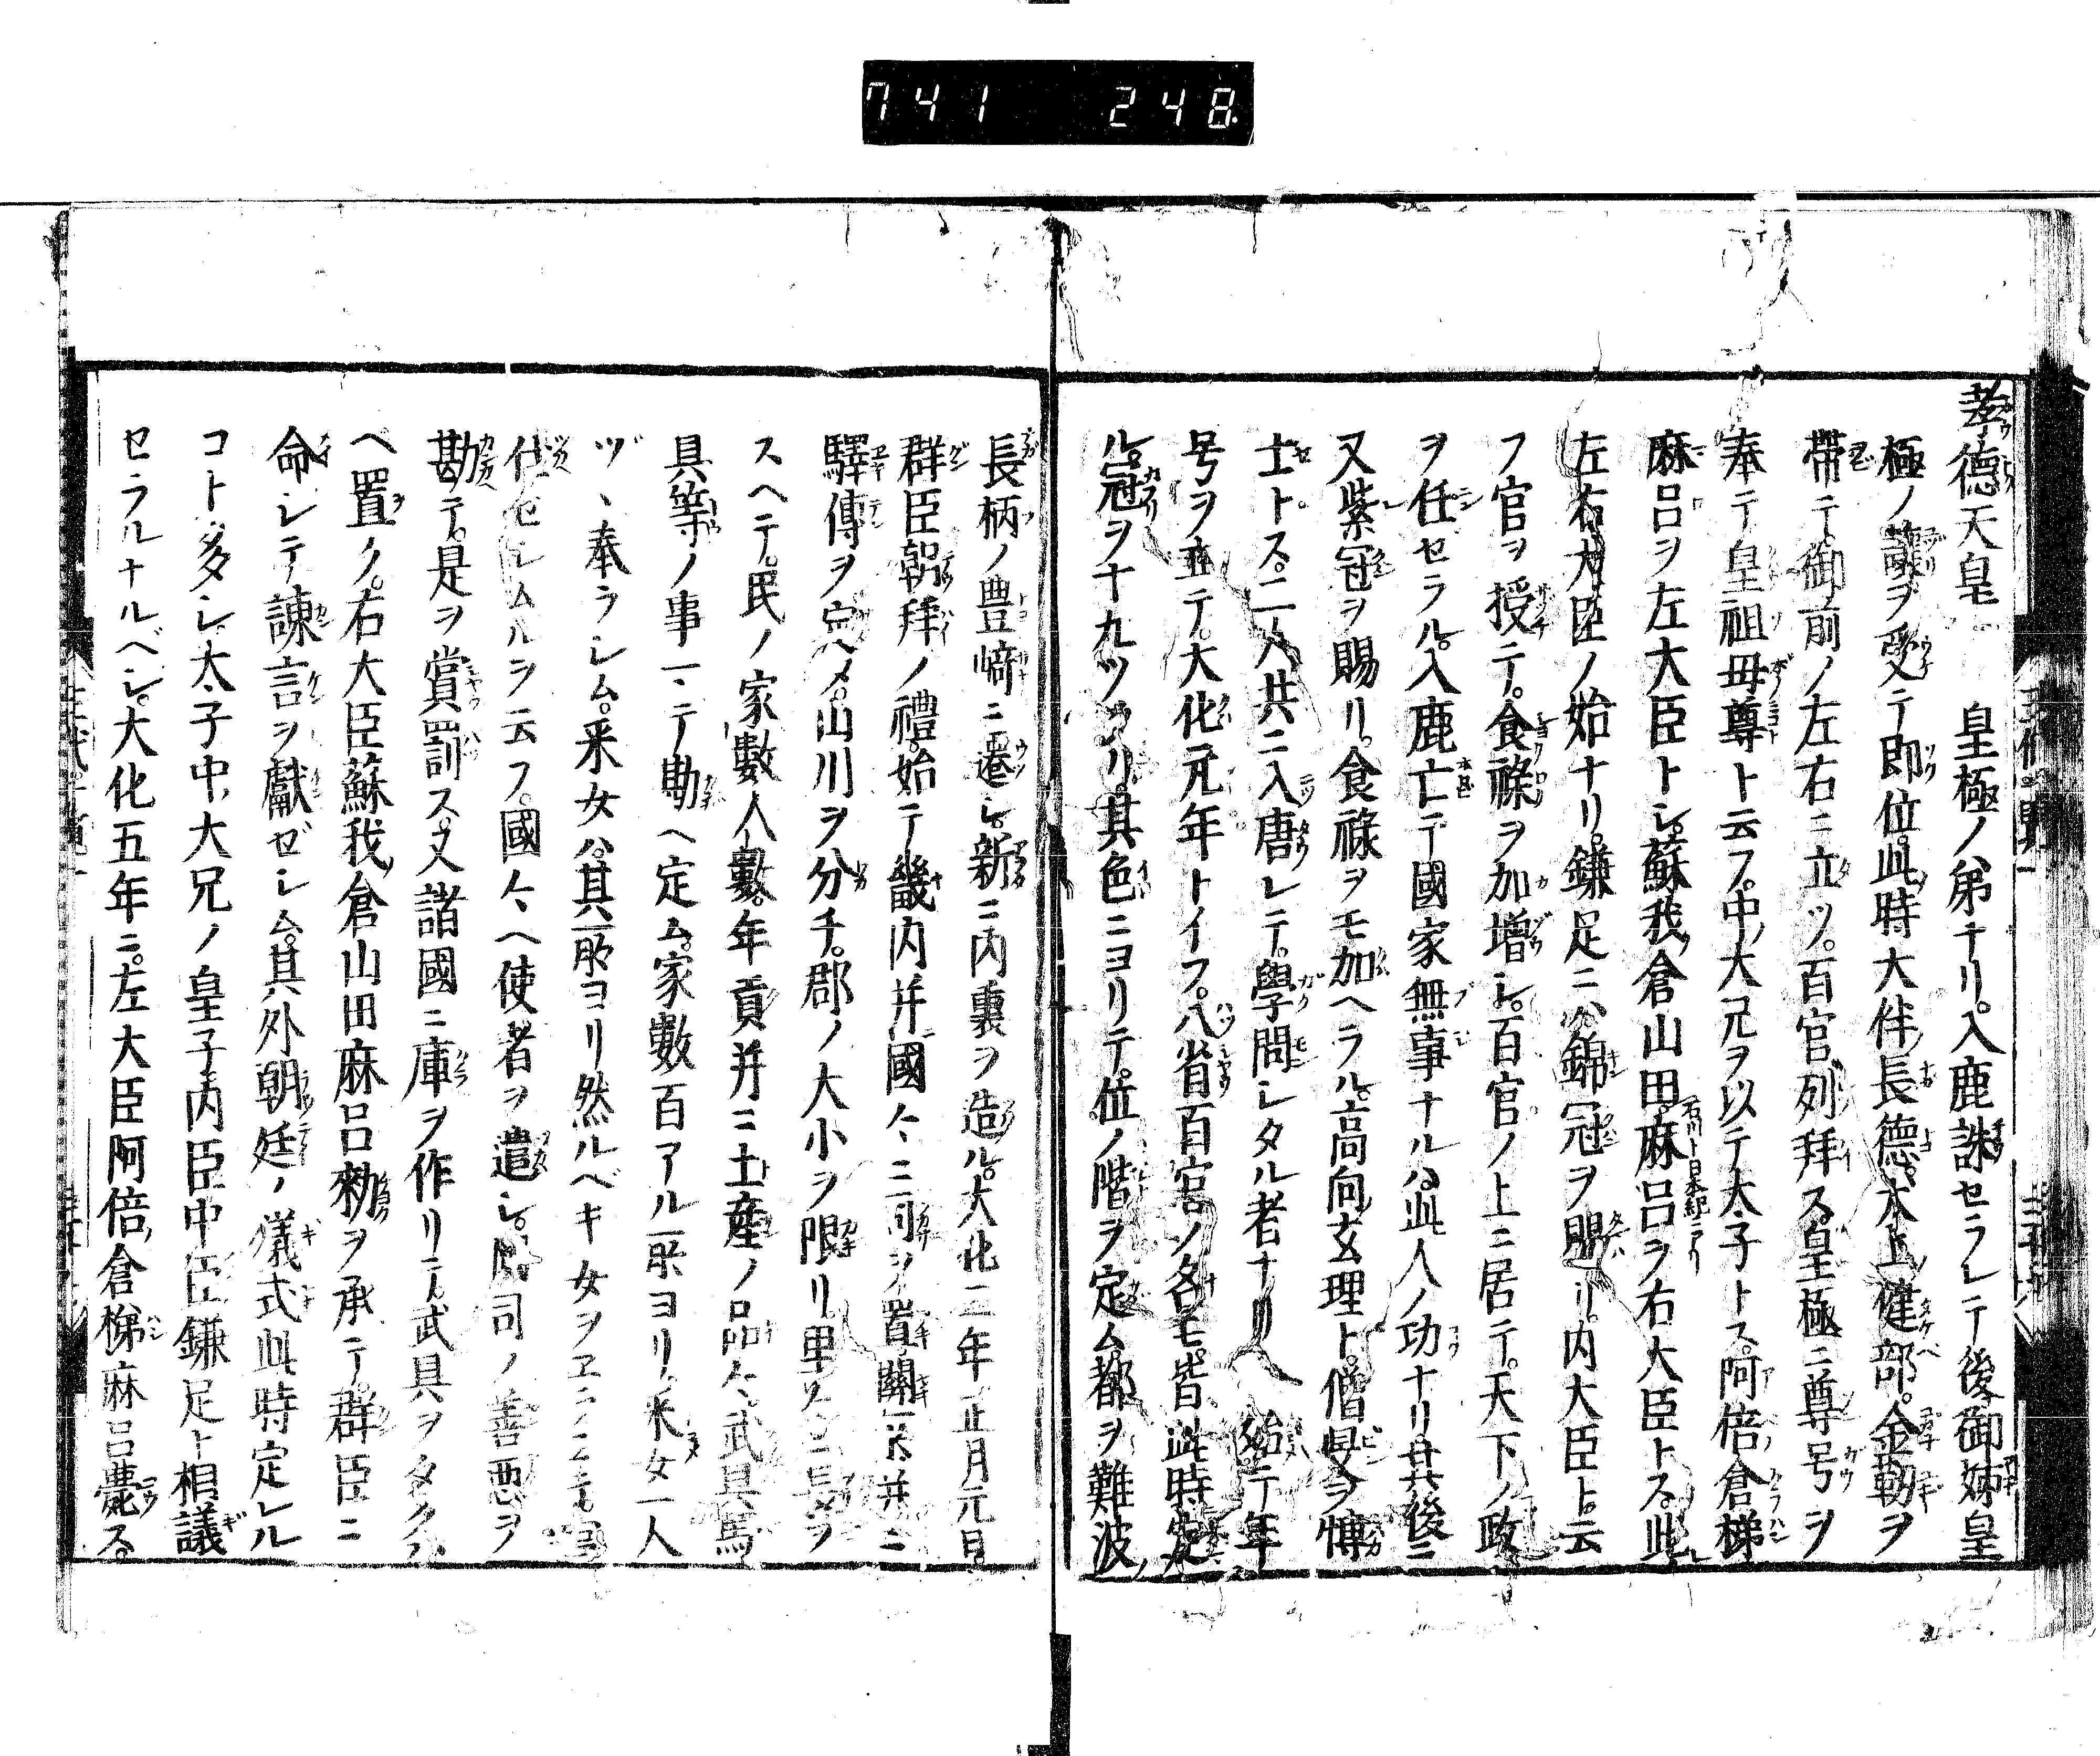 741 248
孝德天皇 皇極ノ弟ナリ。入鹿誅セラレテ後御姉皇
極ノ讓ヲ受テ即位。此時大伴長德。犬上健部。金靱ヲ
帶テ御前ノ左右ニ立ツ。百官列拜ス。皇極ニ尊号ヲ
奉テ皇祖母尊ト云フ。中大兄ヲ以テ太子トス。阿倍倉梯
麻呂ヲ左大臣トシ。蘇我倉山田麻呂ヲ右大臣トス。此
左右大臣ノ始ナリ。鎌足ニハ錦冠ヲ賜リ。内大臣ト云
フ官ヲ授テ。食祿ヲ加增シ。百官ノ上ニ居テ。天下ノ政
ヲ任セラル。入鹿亡テ國家無事ナルハ。此人ノ功ナリ。其後ニ
又紫冠ヲ賜リ。食祿ヲモ加ヘラル。高向玄理ト。僧旻ヲ博
士トス。二人共ニ入唐シテ。學問シタル者ナリ 始テ年
号ヲ立テ。大化元年トイフ。八省百官ノ名モ。皆此時定
ル。冠ヲ十九ツクリ。其色ニヨリテ。位ノ階ヲ定ム。都ヲ難波
長柄ノ豊﨑ニ遷シ。新ニ内裏ヲ造ル。大化二年正月元日。
群臣朝拜ノ禮。始テ畿内并國々ニ司ヲ置。關所并ニ
驛傳ヲ定メ。山川ヲ分チ。郡ノ大小ヲ限リ里々ニ長ヲ
スヘテ。民ノ家數人數。年貢并ニ土産ノ品々武具馬
具等ノ事一々ニ勘ヘ定ム。家數百アル所ヨリ。采女一人
ヅヽ奉ラシム。采女ハ。其所ヨリ然ルベキ女ヲ
仕セシムルヲ云フ。國々ヘ使者ヲ遣シ。國司ノ善惡ヲ
勘テ。是ヲ賞罰ス。又諸國ニ庫ヲ作リテ武具ヲタクハ
ヘ置ク。右大臣蘇我倉山田麻呂勅ヲ承テ。群臣ニ
命シテ諫言ヲ獻ゼシム。其外朝廷ノ儀式此時定レル
コト多シ。太子中大兄ノ皇子内臣中臣鎌足ト相議
セラルナルベシ。大化五年ニ。左大臣阿倍倉梯麻呂薨ス。